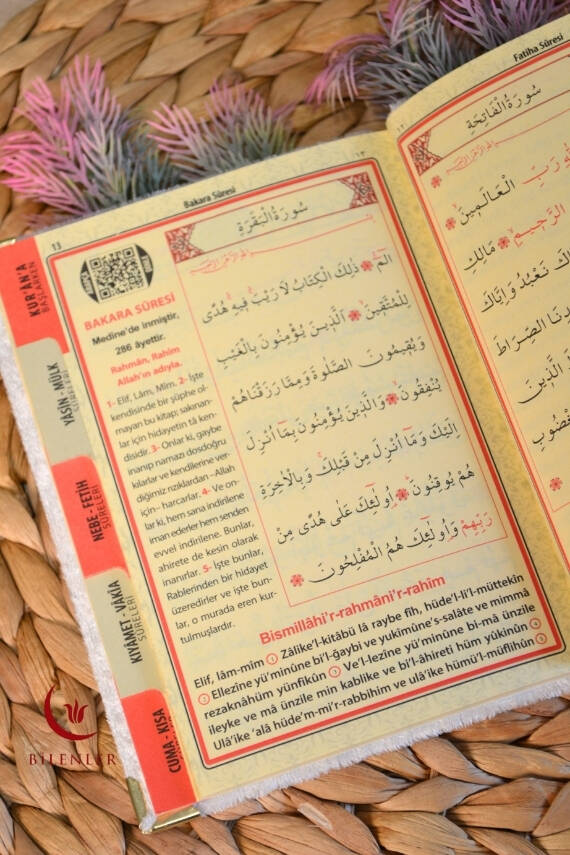 Bakara Sûresi
13
BAKARA SÛRESİ
Medine'de inmiştir,
286 âyettir.
Rahmân, Rahîm
Allah'ın adıyla.
1- Elif, Lâm, Mîm. 2- İşte
kendisinde bir şüphe ol-
mayan bu kitap; sakınan-
lar için hidayetin tâ ken-
disidir. 3- Onlar ki, gaybe
inanıp namazı dosdoğru
kılarlar ve kendilerine ver-
diğimiz rızıklardan –Allah
için– harcarlar. 4- Ve on-
lar ki, hem sana indirilene
iman ederler hem senden
evvel indirilene. Bunlar,
ahirete de kesin olarak
inanırlar. 5- İşte bunlar,
Rablerinden bir hidayet
üzeredirler ve işte bun-
lar, o murada eren kur-
tulmuşlardır.
سُورَةُ الْبَقَرَةِ
الٓمٓ ذٰلِكَ الْكِتَابُ لَا رَيْبَ فِيهِ هُدًى
لِلْمُتَّقِينَ اَلَّذِينَ يُؤْمِنُونَ بِالْغَيْبِ
وَيُقِيمُونَ الصَّلٰوةَ وَمِمَّا رَزَقْنَاهُمْ
يُنْفِقُونَ وَالَّذِينَ يُؤْمِنُونَ بِمَٓا اُنْزِلَ
اِلَيْكَ وَمَٓا اُنْزِلَ مِنْ قَبْلِكَ وَبِالْاٰخِرَةِ
هُمْ يُوقِنُونَ اُو۬لٰٓئِكَ عَلٰى هُدًى مِنْ
رَبِّهِمْ وَاُو۬لٰٓئِكَ هُمُ الْمُفْلِحُونَ
Bismillâhi'r-rahmâni'r-rahîm
Elif, lâm-mîm 1 Zâlike'l-kitâbü lâ raybe fîh, hüde'l-li'l-müttekîn
2 Ellezîne yü'minûne bi'l-ğaybi ve yukîmûne's-salâte ve mimmâ
rezaknâhüm yünfikûn 3 Ve'l-lezîne yü'minûne bi-mâ ünzile
ileyke ve mâ ünzile min kablike ve bi'l-âhireti hüm yûkinûn 4
Ulâ'ike 'alâ hüde'm-mi'r-rabbihim ve ulâ'ike hümü'l-müflihûn 5
Fatiha Sûresi
سُورَةُ الْفَاتِحَةِ
رَبِّ الْعَالَمِينَ
الرَّحِيمِ مَالِكِ
نَعْبُدُ وَاِيَّاكَ
الصِّرَاطَ
الَّذِينَ
KUR'AN'A
BAŞLARKEN
YASİN - MÜLK
SÛRELERİ
NEBE - FETİH
SÛRELERİ
KIYAMET - VAKIA
SÛRELERİ
CUMA - KISA
BİLENLER